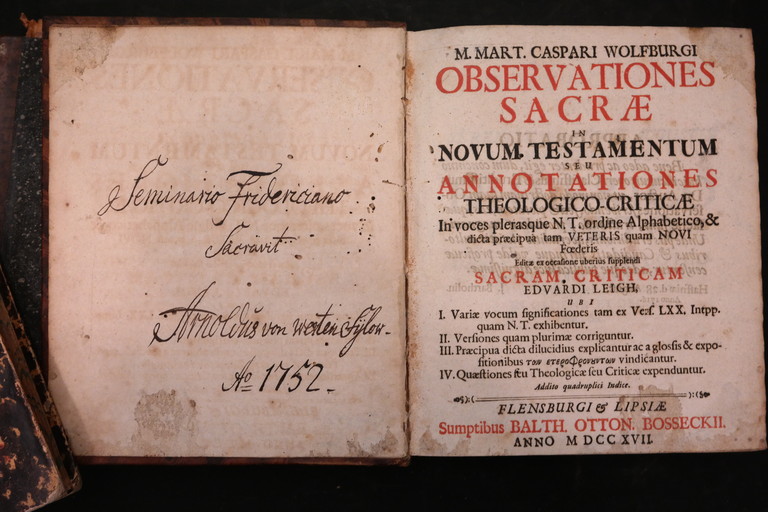 Seminario Fridericiano
Sacravit
Arnoldus von Westen Sylow
Ao 1752.
M. MART. CASPARI WOLFBURGI
OBSERVATIONES
SACRÆ
IN
NOVUM TESTAMENTUM
SEU
ANNOTATIONES
THEOLOGICO-CRITICÆ
In voces plerasque N. T. ordine Alphabetico, &
dicta præcipua tam VETERIS quam NOVI
Fœderis
Editæ ex occasione uberius supplendi
SACRAM CRITICAM
EDVARDI LEIGH.
UBI
I. Variæ vocum significationes tam ex Vers. LXX. Intpp.
quam N. T. exhibentur.
II. Versiones quam plurimæ corriguntur.
III. Præcipua dicta dilucidius explicantur ac a glossis & expo-
sitionibus των ετεροφρονουντων vindicantur.
IV. Quæstiones seu Theologicæ seu Criticæ expenduntur.
Addito quadruplici Indice.
FLENSBURGI & LIPSIÆ
Sumptibus BALTH. OTTON. BOSSECKII.
ANNO M DCC XVII.